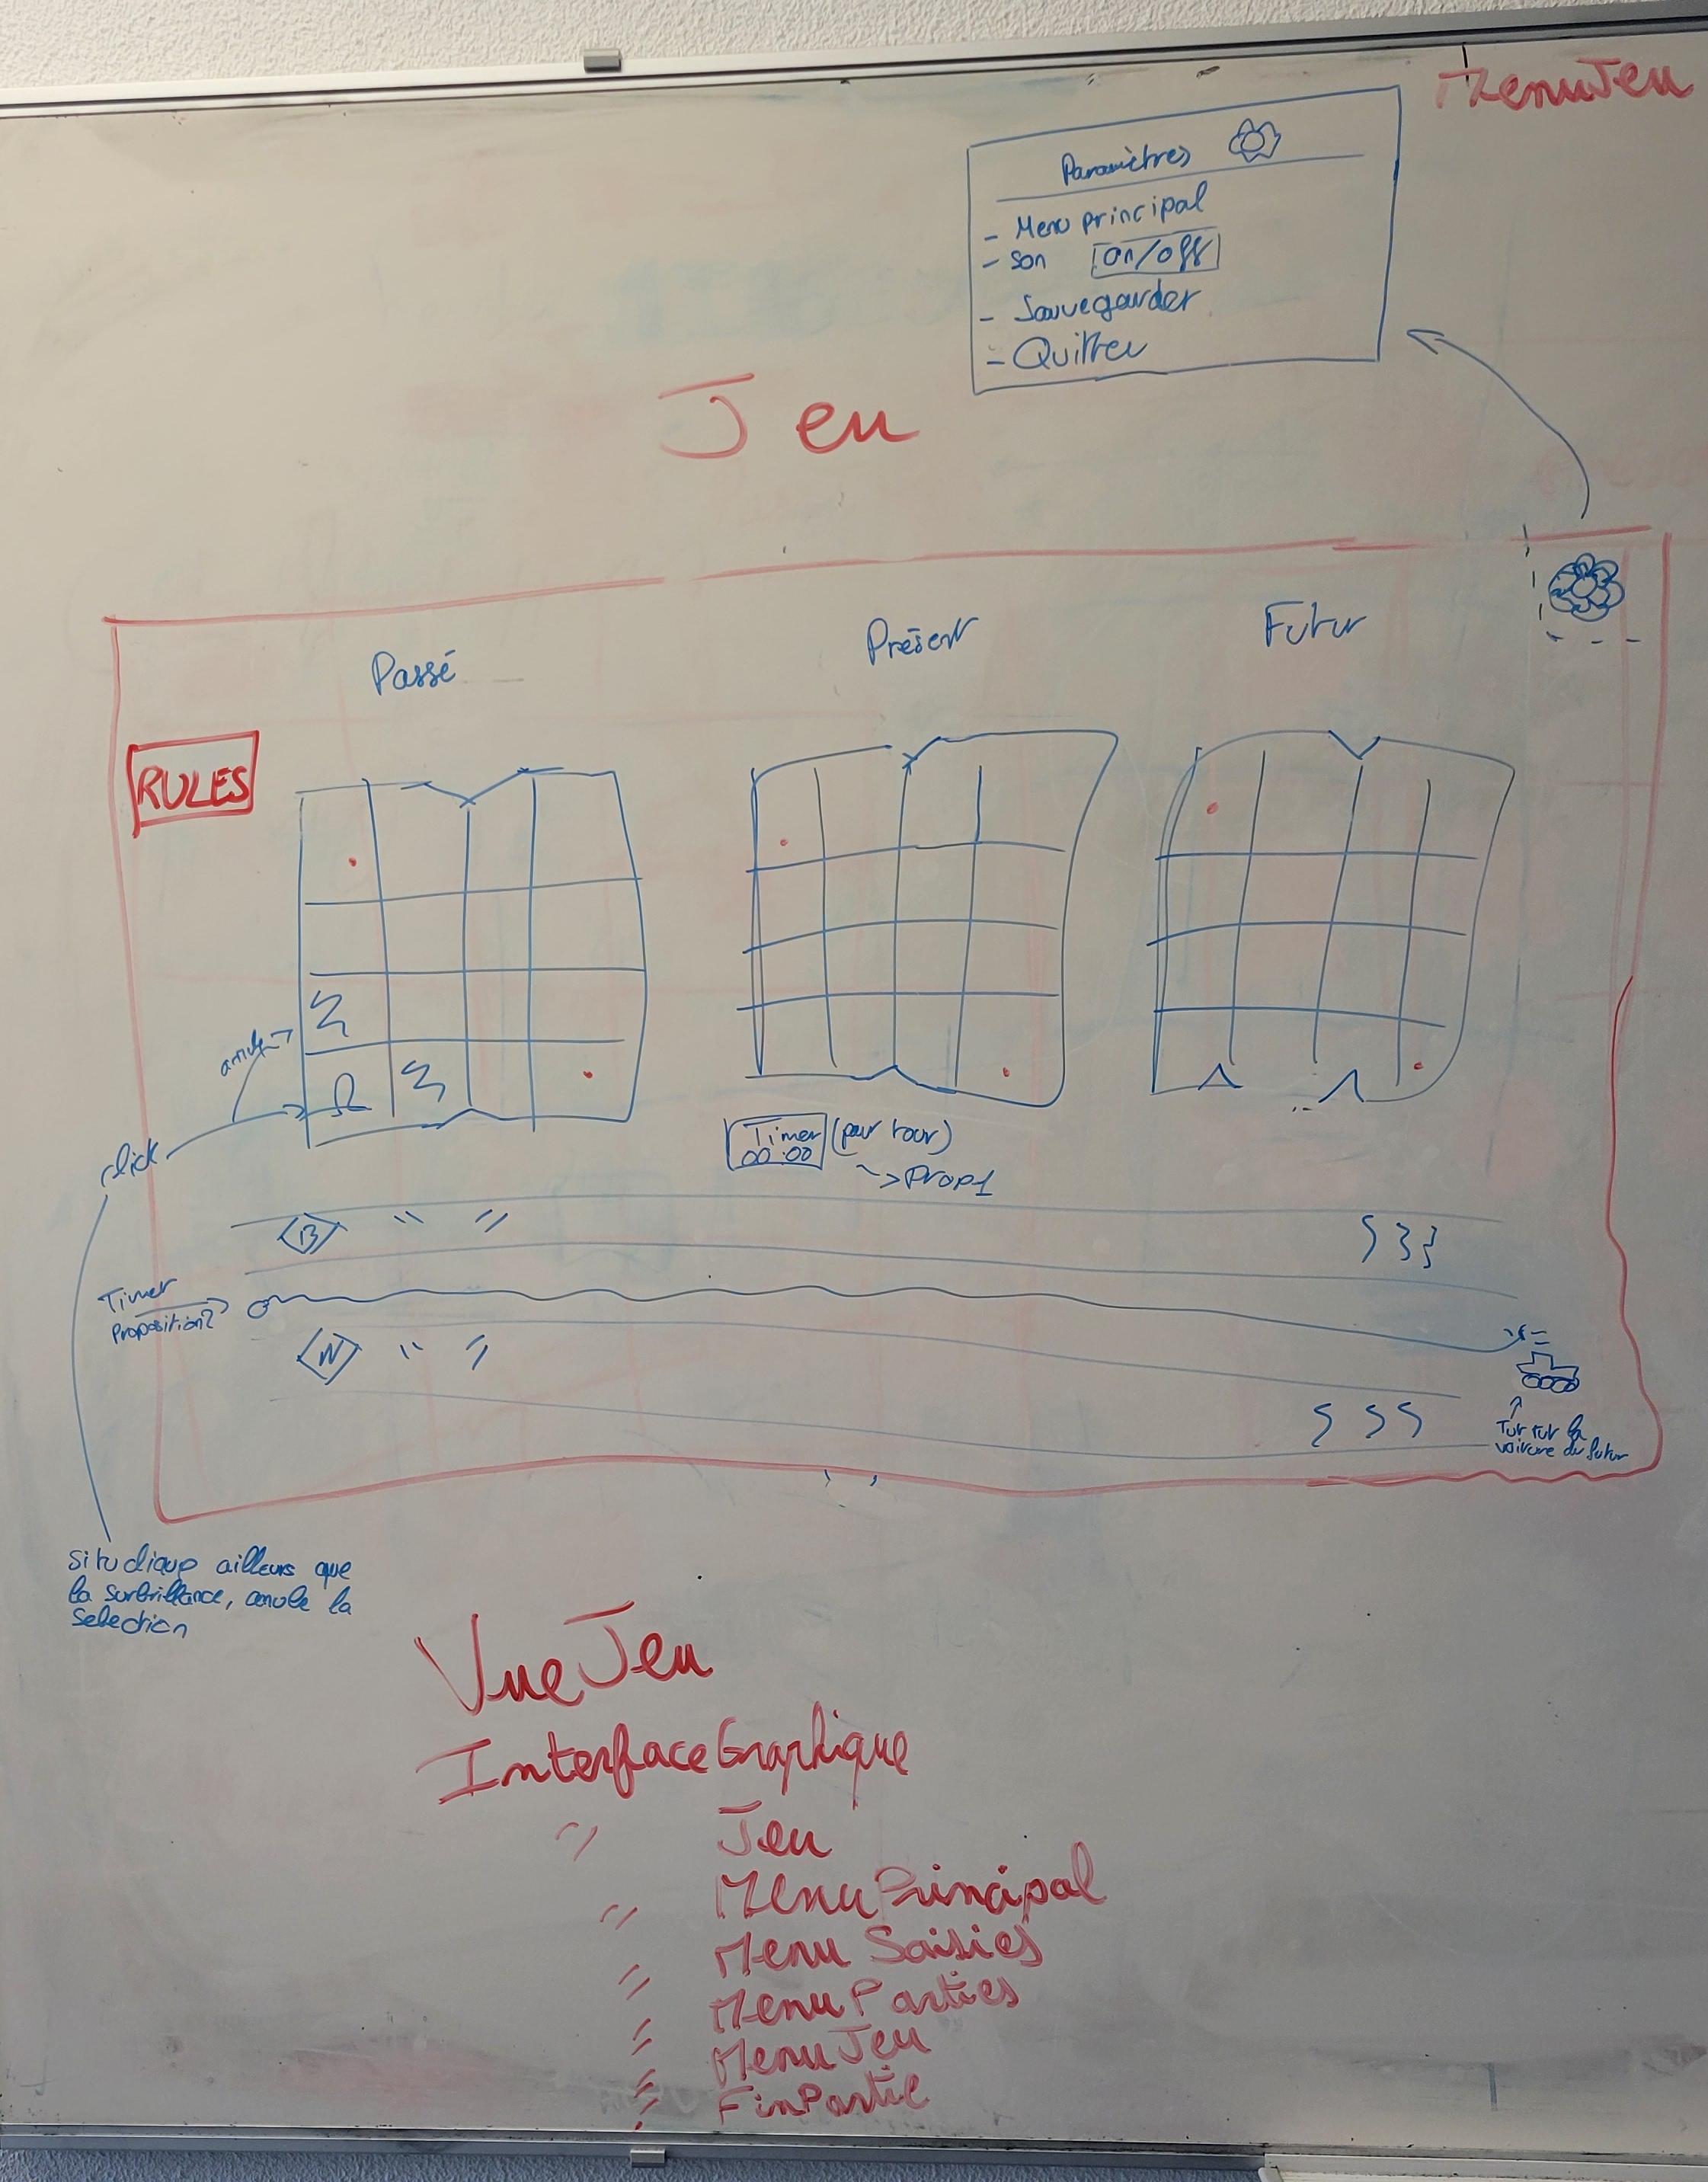 MenuJeu
Paramètres
- Menu principal
- Son on/off
- Sauvegarder
- Quitter
Jeu
Passé
Présent
Futur
RULES
click
Timer (par tour)
00:00
->Prop1
B " "
Timer
Proposition2
N " "
Tut tut la
voiture du futur
si tu cliques ailleurs que
la surbrillance, annule la
selection
VueJeu
InterfaceGraphique
" Jeu
" MenuPrincipal
" Menu Saisies
" MenuParties
" MenuJeu
" FinPartie